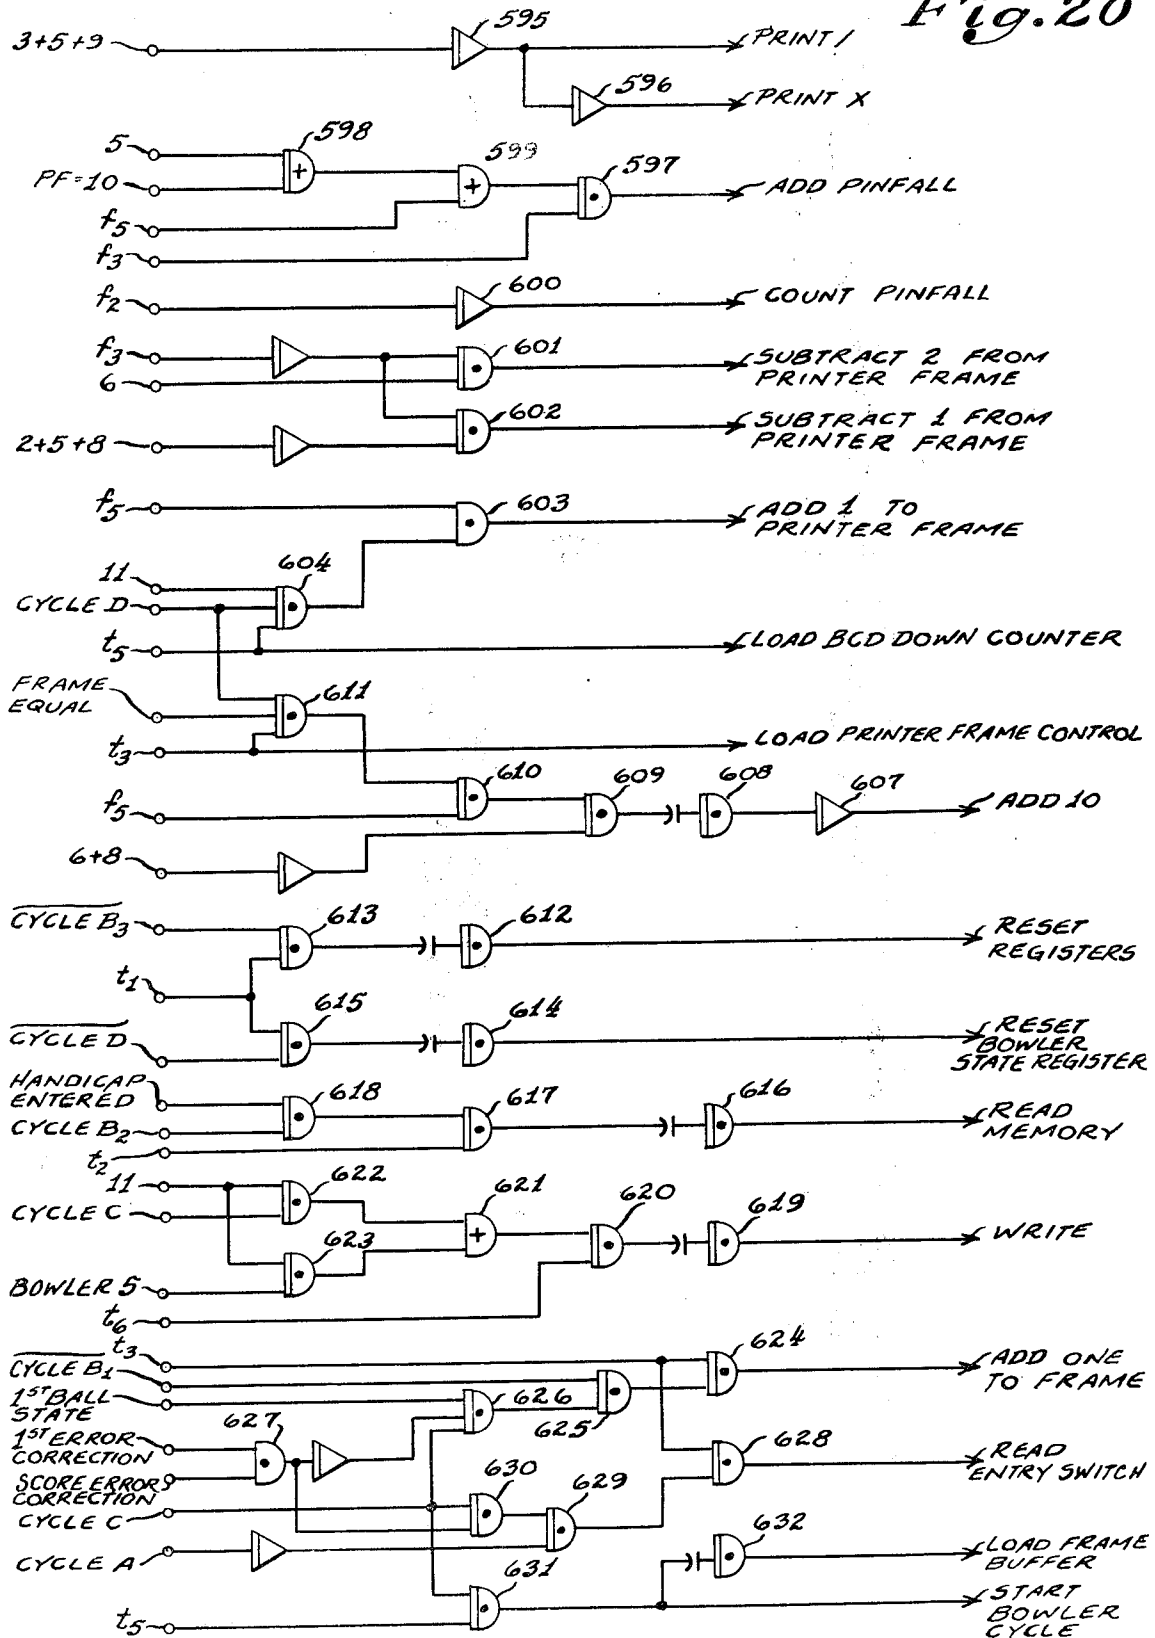 Fig. 20
3+5+9
595
PRINT /
596
PRINT X
5
598
PF=10
599
597
ADD PINFALL
f5
f3
f2
600
COUNT PINFALL
f3
601
SUBTRACT 2 FROM
PRINTER FRAME
6
602
SUBTRACT 1 FROM
PRINTER FRAME
2+5+8
f5
603
ADD 1 TO
PRINTER FRAME
11
604
CYCLE D
t5
LOAD BCD DOWN COUNTER
FRAME
EQUAL
611
t3
LOAD PRINTER FRAME CONTROL
610
609
608
607
ADD 10
f5
6+8
CYCLE B3
613
612
RESET
REGISTERS
t1
615
614
RESET
BOWLER
STATE REGISTER
CYCLE D
HANDICAP
ENTERED
618
617
616
READ
MEMORY
CYCLE B2
t2
11
622
621
620
619
WRITE
CYCLE C
623
BOWLER 5
t6
t3
624
ADD ONE
TO FRAME
CYCLE B1
1ST BALL
STATE
626
625
627
1ST ERROR
CORRECTION
628
READ
ENTRY SWITCH
SCORE ERROR
CORRECTION
630
629
CYCLE C
632
LOAD FRAME
BUFFER
CYCLE A
631
START
BOWLER
CYCLE
t5